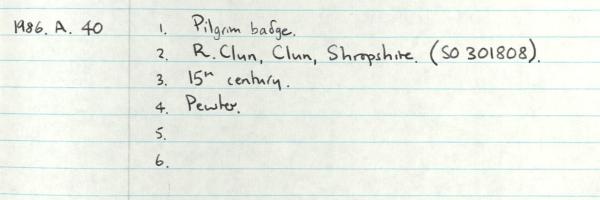 1986. A. 40 1. Pilgrim badge.
2. R. Clun, Clun, Shropshire. (SO 301808).
3. 15th century.
4. Pewter.
5.
6.